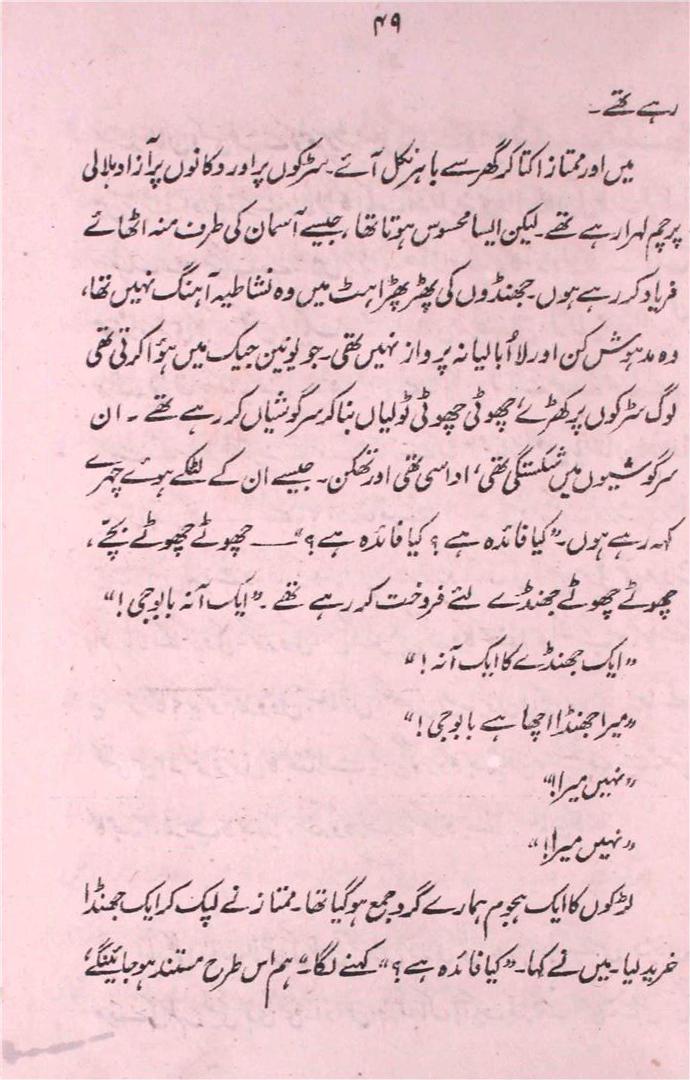 ۴۹
رہے تھے۔
میں اور ممتاز اکتا کر گھر سے باہر نکل آئے۔ سڑکوں پر اور دکانوں پر آزاد ہلالی
پرچم لہرا رہے تھے۔ لیکن ایسا محسوس ہوتا تھا، جیسے آسمان کی طرف منہ اٹھائے
فریاد کر رہے ہوں۔ جھنڈوں کی پھڑپھڑاہٹ میں وہ نشاطیہ آہنگ نہیں تھا،
وہ مدہوش کن اور لااُبالیانہ پرواز نہیں تھی۔ جو یونین جیک میں ہؤا کرتی تھی
لوگ سڑکوں پر کھڑے، چھوٹی چھوٹی ٹولیاں بنا کر سرگوشیاں کر رہے تھے ۔ ان
سرگوشیوں میں شکستگی تھی، اداسی تھی اور تھکن۔ جیسے ان کے لٹکے ہوئے چہرے
کہہ رہے ہوں۔ "کیا فائدہ ہے ؟ کیا فائدہ ہے ؟" ــــ چھوٹے چھوٹے بچّے ،
چھوٹے چھوٹے جھنڈے لئے فروخت کر رہے تھے ۔ "ایک آنہ بابو جی !"
"ایک جھنڈے کا ایک آنہ !"
"میرا جھنڈا اچھا ہے بابو جی !"
"نہیں میرا!"
"نہیں میرا!"
لڑکوں کا ایک ہجوم ہمارے گرد جمع ہو گیا تھا۔ ممتاز نے لپک کر ایک جھنڈا
خرید لیا۔ میں نے کہا۔ "کیا فائدہ ہے ؟" کہنے لگا۔ "ہم اس طرح مستند ہو جائینگے،